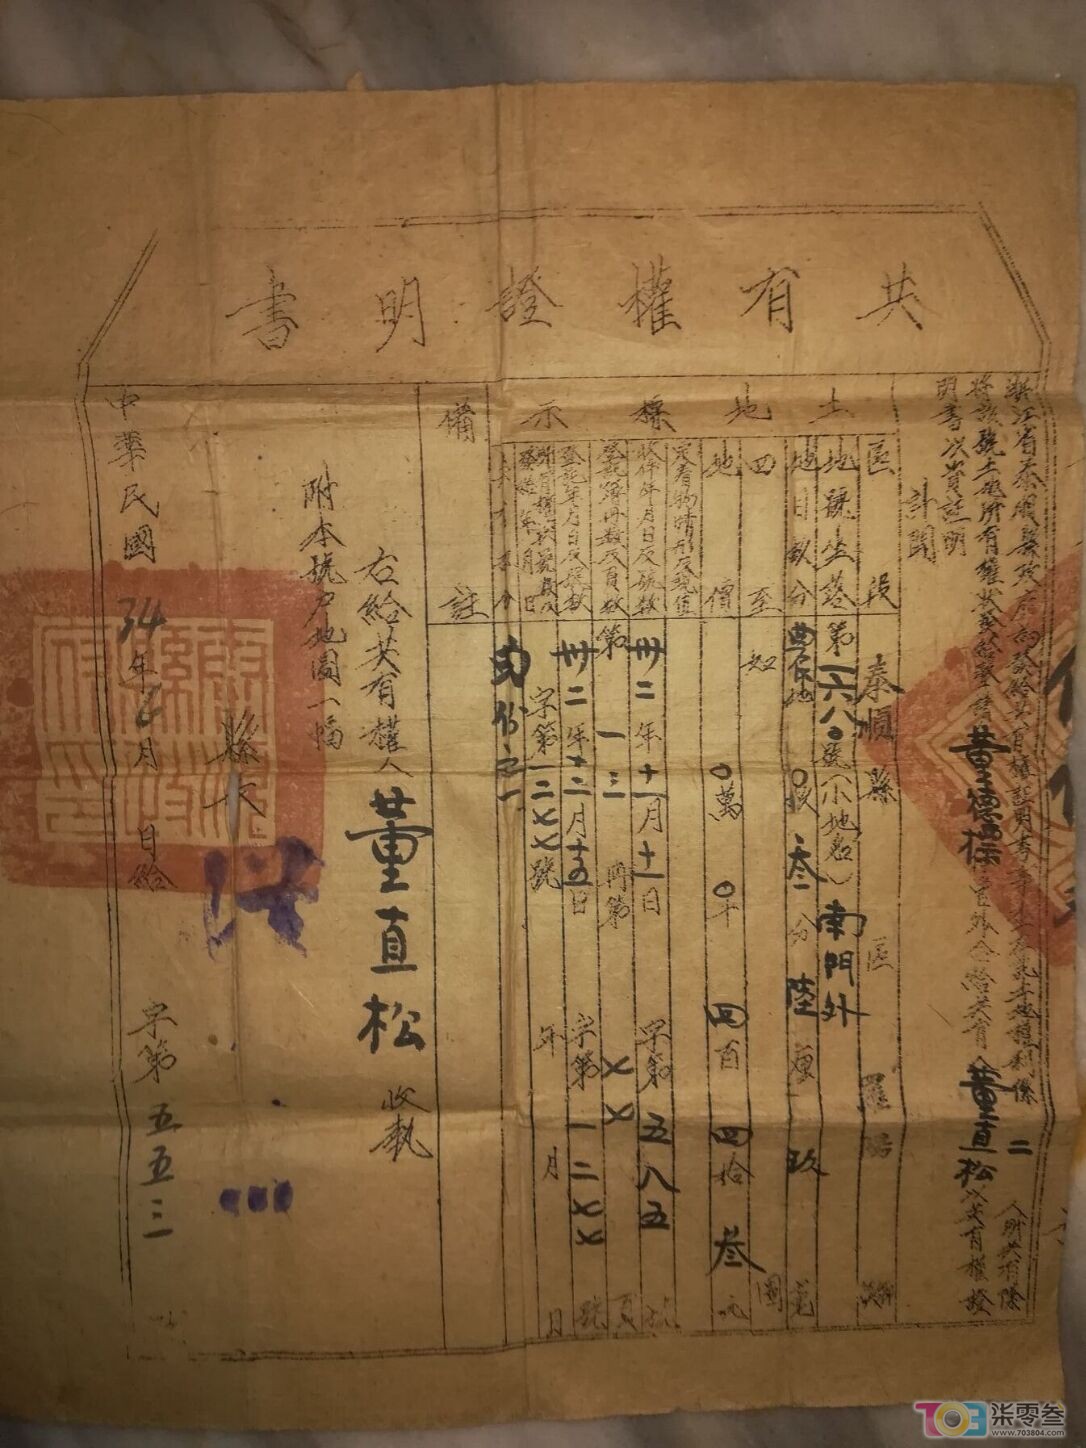 共有權證明書
浙江省泰順縣政府為發給共有權證明書事 二 人所共有除
將該號土地所有權狀發給聲請董德標 外合給共有人董直松以共有權證
明書以資証明
計開
土地標示
區段 泰順縣 區 羅陽鎮
地號坐落 第一六八〇號(小地名)南門外
地目畝分 農地 〇畝叁分陸厘玖毫
四至 如 圖
地價 〇萬〇千四百四拾叁元
定着物情形及現值
收件年月日及號數 卅二年十一月十一日 字第五八五號
登記簿冊數及頁數 第一三冊第七七頁
登記年月日及號數 卅二年十二月十五日 字第一二七七號
所有權狀號數及發給年月日 字第一二七七號 年 月
弍份之一
備註
右給共有權人董直松收執
附本號戶地圖一幅
縣長
中華民國34年6月 日給 字第 五五三
柒零叁
www.703804.com